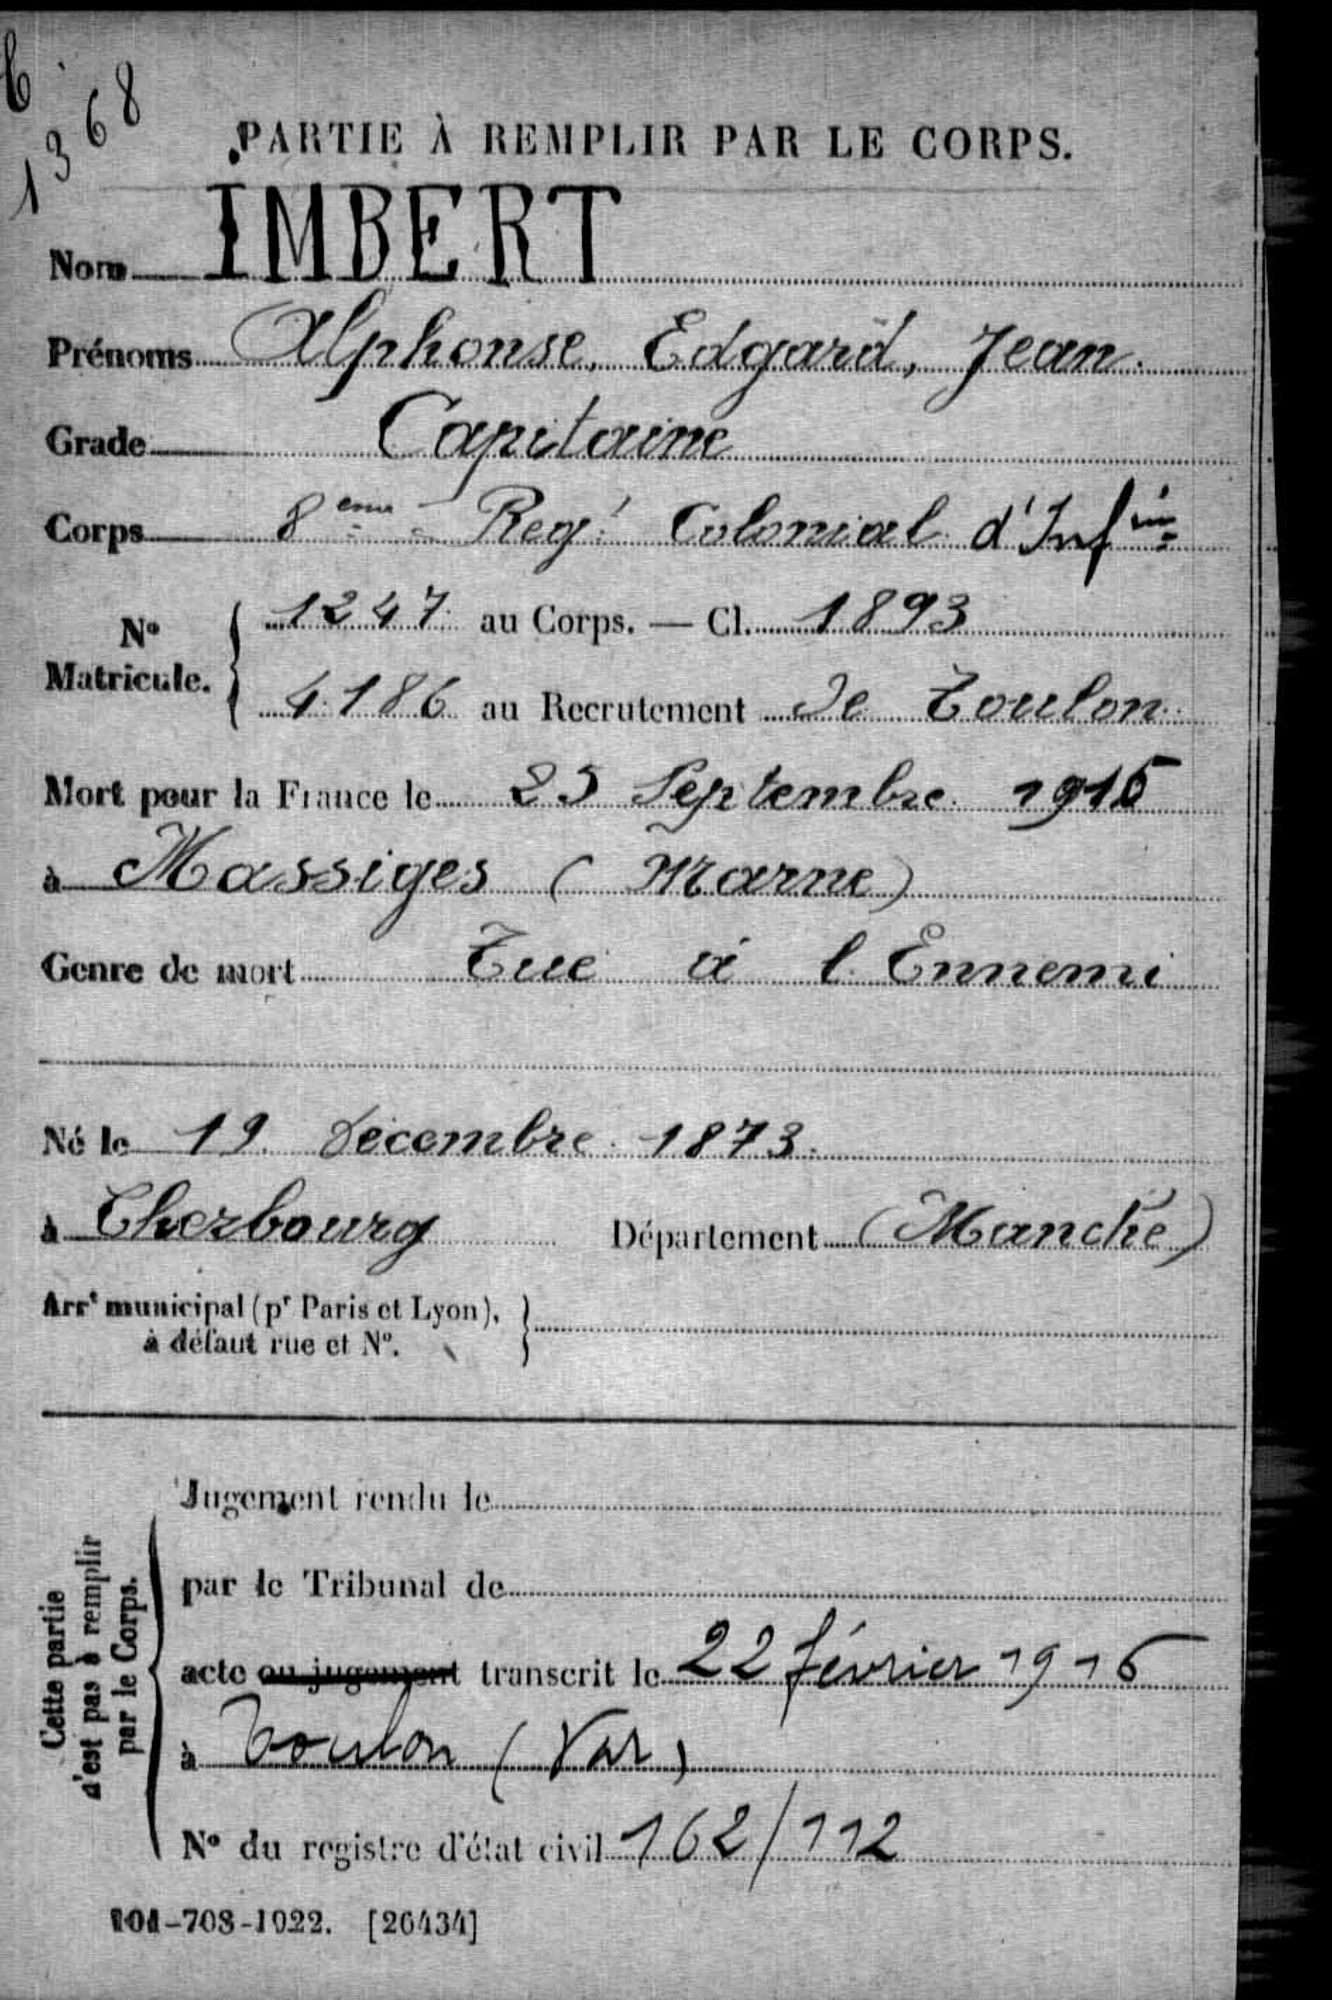 1368
PARTIE À REMPLIR PAR LE CORPS.
Nom IMBERT
Prénoms Alphonse, Edgard, Jean.
Grade Capitaine
Corps 8eme Regt Colonial d'Infie
No Matricule. { 1247 au Corps. — Cl. 1893
4186 au Recrutement de Toulon
Mort pour la France le 25 Septembre 1915
à Massiges (Marne)
Genre de mort Tué à l'Ennemi
Né le 19 Décembre 1873.
à Cherbourg Département (Manche)
Arrt municipal (pr Paris et Lyon), }
à défaut rue et No.
Cette partie
n'est pas à remplir
par le Corps.
Jugement rendu le
par le Tribunal de
acte ou jugement transcrit le 22 février 1916
à Toulon (Var)
No du registre d'état civil 162/112
101-708-1922. [26434]